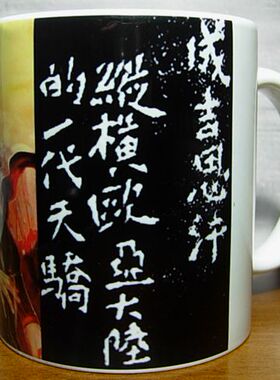 成吉思汗
縱橫歐亞大陸
的一代天驕